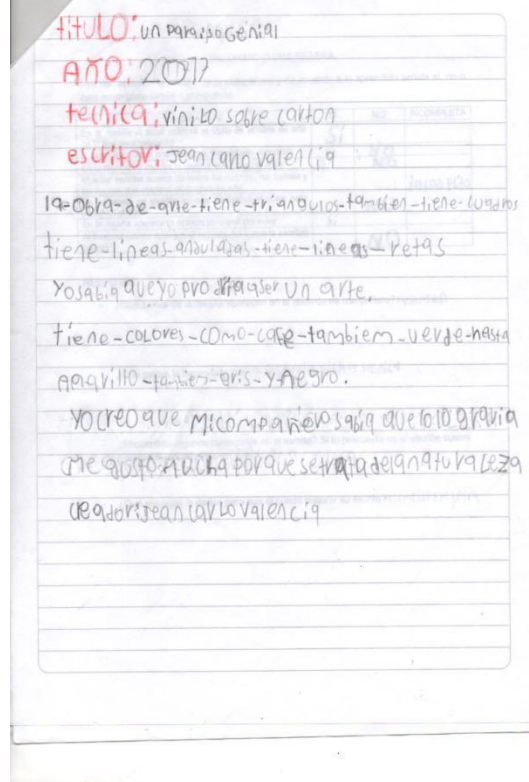 título: un paraiso Genial
AÑO: 2017
tecnica: vinilo sobre carton
escritor: Jean carlo valencia
la-Obra-de-arte-tiene-triangulos-tambien-tiene-cuadros
tiene-lineas-onduladas-tiene-lineas-retas
Yo sabia que yo pro dria aser un arte.
tiene-coLores-como-cafe-tambiem-verde-hasta
Amarillo-tambien-gris-y-Negro.
Yo creo que Micompañero sabia que lo lo graria
Me gusto mucha porque se trata dela naturaLeza
creador: Jean carLo valencia